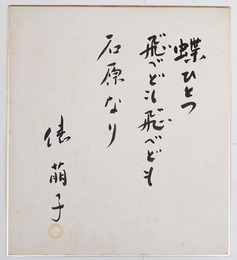 蝶ひとつ
飛べども飛べども
石原なり
俵萠子